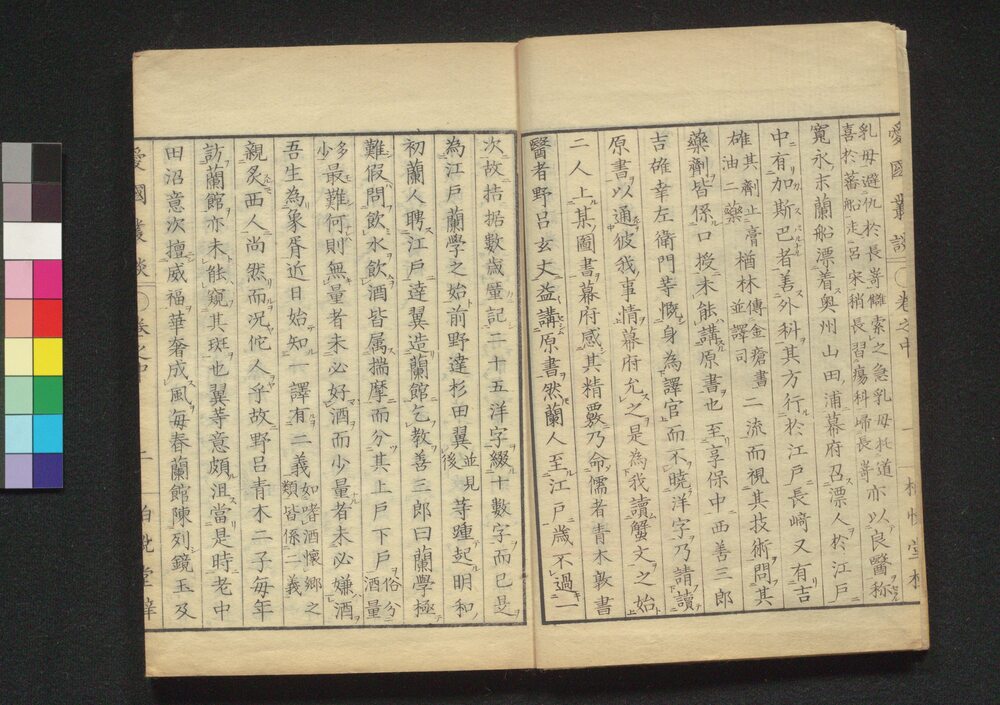 愛國叢談 卷之中 一 柏悅堂梓
乳母避仇於長㟢雠索之急乳母托道亦以良醫称
喜於蕃船走呂宋稍長習瘍科㱕長㟢
寬永末蘭船漂着奥州山田浦幕府召漂人於江戸
中有加斯巴者善外科其方行於江戸長﨑又有吉
雄其劑止膏油二藥楢林傳金瘡書並譯司二流而視其技術問其
藥劑皆係口授未能講原書也至享保中西善三郎
吉雄幸左衛門等慨身為譯官而不暁洋字乃請讀
原書以通彼我事情幕府允之是為我讀蟹文之始
二人上某圖書幕府感其精覈乃命儒者青木敦書
醫者野呂玄丈益講原書然蘭人至江戸歲不過一
次故拮据數歲蠒記二十五洋字綴十數字而已是
為江戸蘭學之始前野達杉田翼並見後等踵起明和
初蘭人聘江戸達翼造蘭館乞教善三郎曰蘭學極
難假問飲水飲酒皆属揣摩而分其上戸下戸俗分酒量
多少最難何則無量者未必好酒而少量者未必嫌酒
吾生為象胥近日始知一譯有二義如嗜酒懷鄉之類皆係二義
親炙西人尚然而況佗人乎故野呂青木二子每年
訪蘭館亦未能窺其斑也翼等意頗沮當是時老中
田沼意次擅威福華奢成風每春蘭館陳列鏡玉及
愛國叢談 卷之中 二 柏悅堂梓